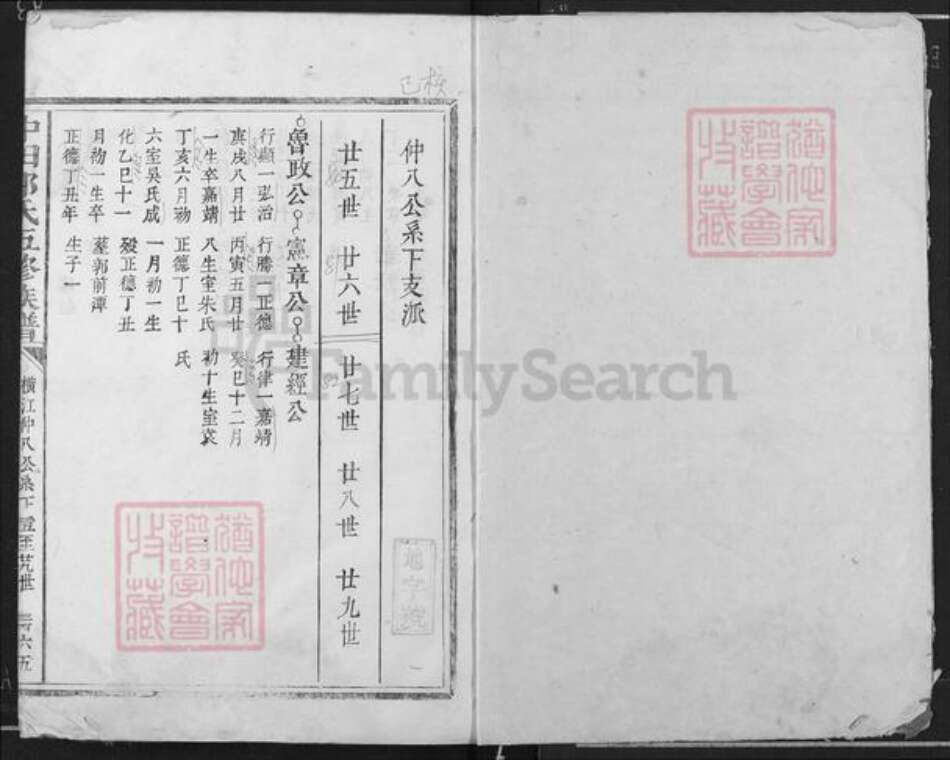 已核
仲八公系下支派
廿五世 廿六世 廿七世 廿八世 廿九世
魯政公 憲章公 建經公
行顯一弘治 行騰一正德 行律一嘉靖
庚戌八月廿 丙寅五月廿 癸巳十二月
一生卒嘉靖 八生室朱氏 初十生室袁
丁亥六月初 正德丁巳十 氏
六室吳氏成 一月初一生
化乙巳十一 歿正德丁丑
月初一生卒 墓郭前潭
正德丁丑年 生子一
氏五修族譜
橫江仲八公系下
世
六五
一
猶他家譜學會收藏
猶他家譜學會收藏
FamilySearch